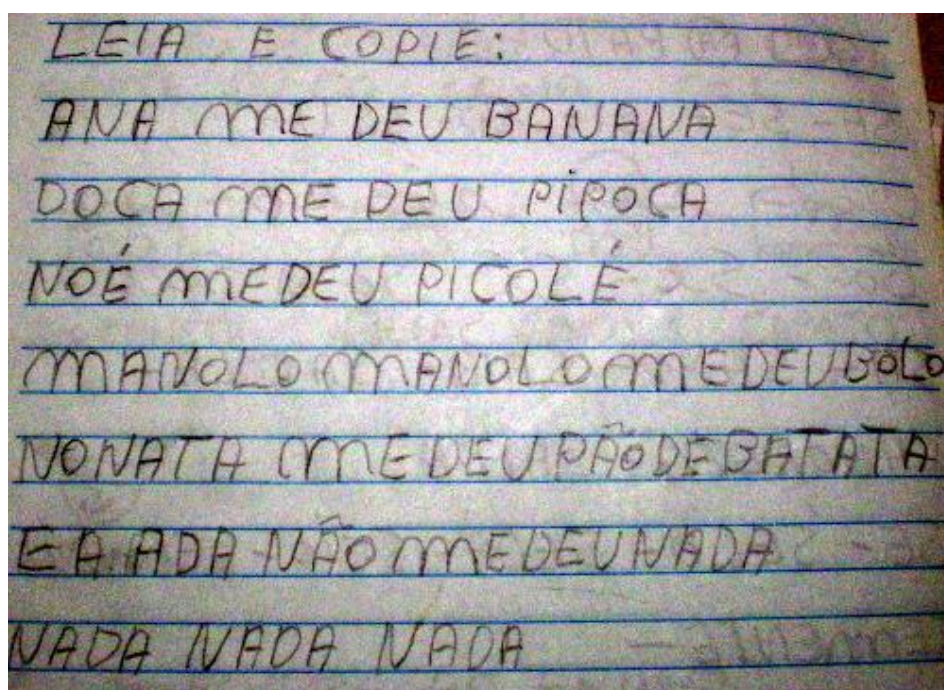 LEIA E COPIE:
ANA ME DEU BANANA
DOCA ME DEU PIPOCA
NOÉ MEDEU PICOLÉ
MANOLO MANOLO MEDEUBOLO
NONATA MEDEU PÃODEBATATA
E A ADA NÃO MEDEUNADA
NADA NADA NADA